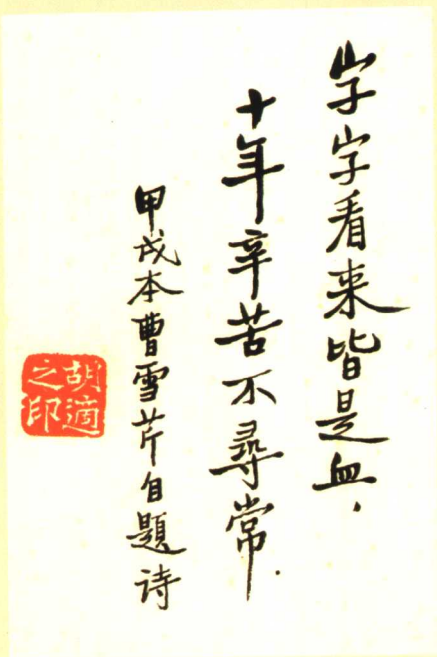 字字看来皆是血，
十年辛苦不尋常.
甲戌本曹雪芹自題诗
胡適之印